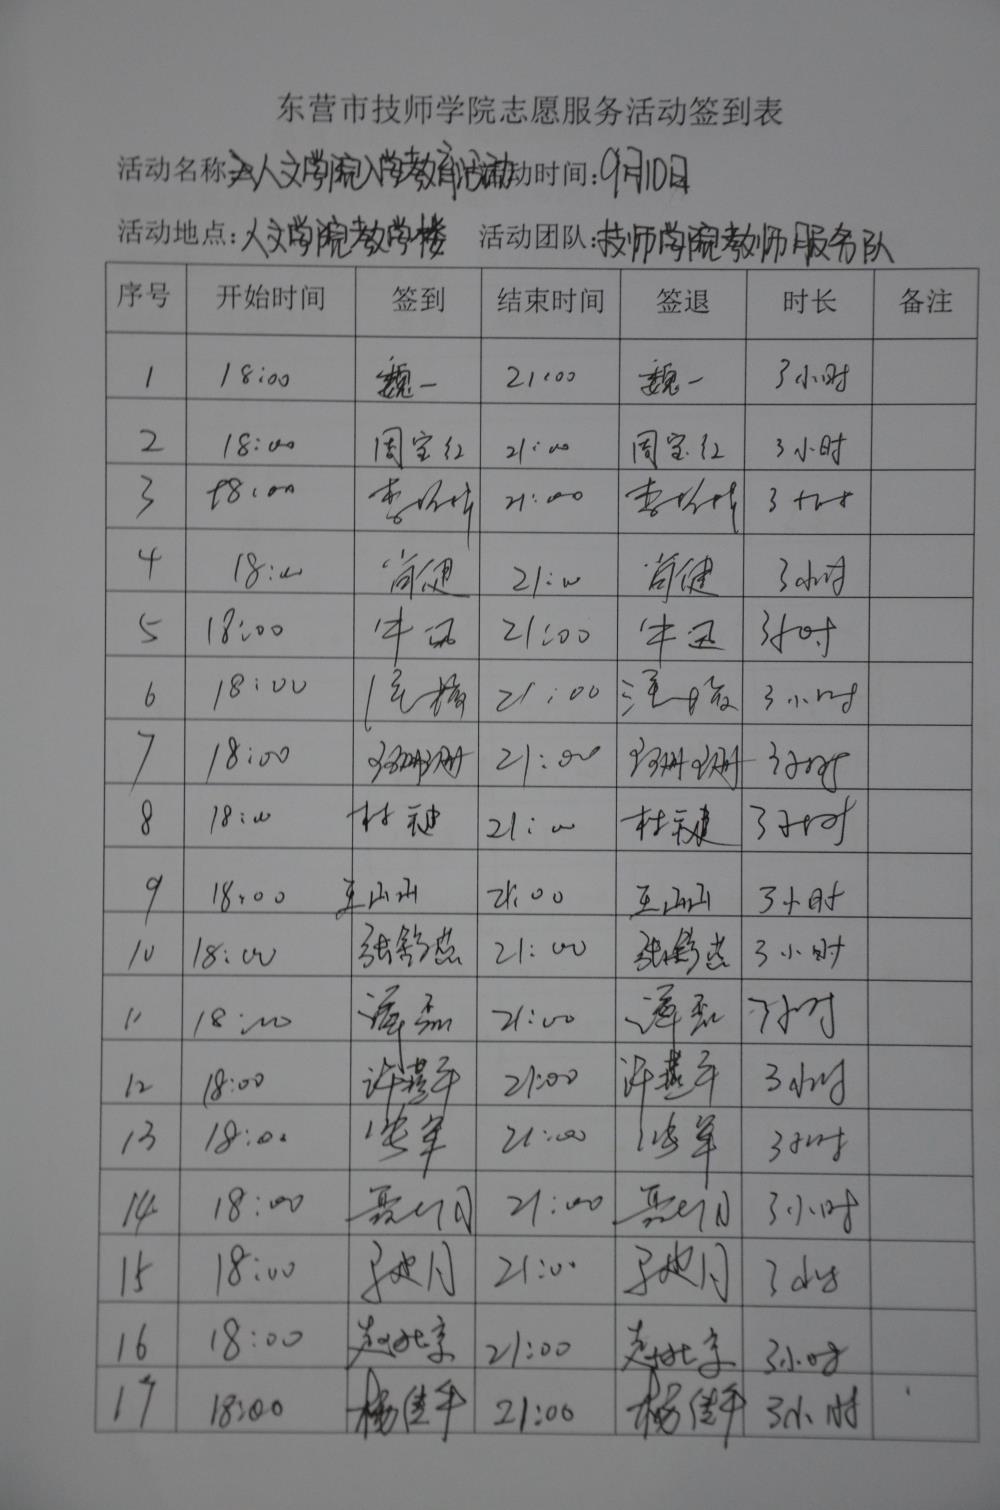 东营市技师学院志愿服务活动签到表
活动名称:人文学院入学教育活动 活动时间:9月10日
活动地点:人文学院教学楼 活动团队:技师学院教师服务队
序号 开始时间 签到 结束时间 签退 时长 备注
1 18:00 魏一 21:00 魏一 3小时
2 18:00 周宝红 21:00 周宝红 3小时
3 18:00 21:00 3小时
4 18:00 21:00 3小时
5 18:00 21:00 3小时
6 18:00 21:00 3小时
7 18:00 21:00 3小时
8 18:00 21:00 3小时
9 18:00 王山山 21:00 王山山 3小时
10 18:00 张舒燕 21:00 张舒燕 3小时
11 18:00 谭磊 21:00 谭磊 3小时
12 18:00 许燕平 21:00 许燕平 3小时
13 18:00 张军 21:00 张军 3小时
14 18:00 21:00 3小时
15 18:00 21:00 3小时
16 18:00 赵北京 21:00 赵北京 3小时
17 18:00 杨佳平 21:00 杨佳平 3小时